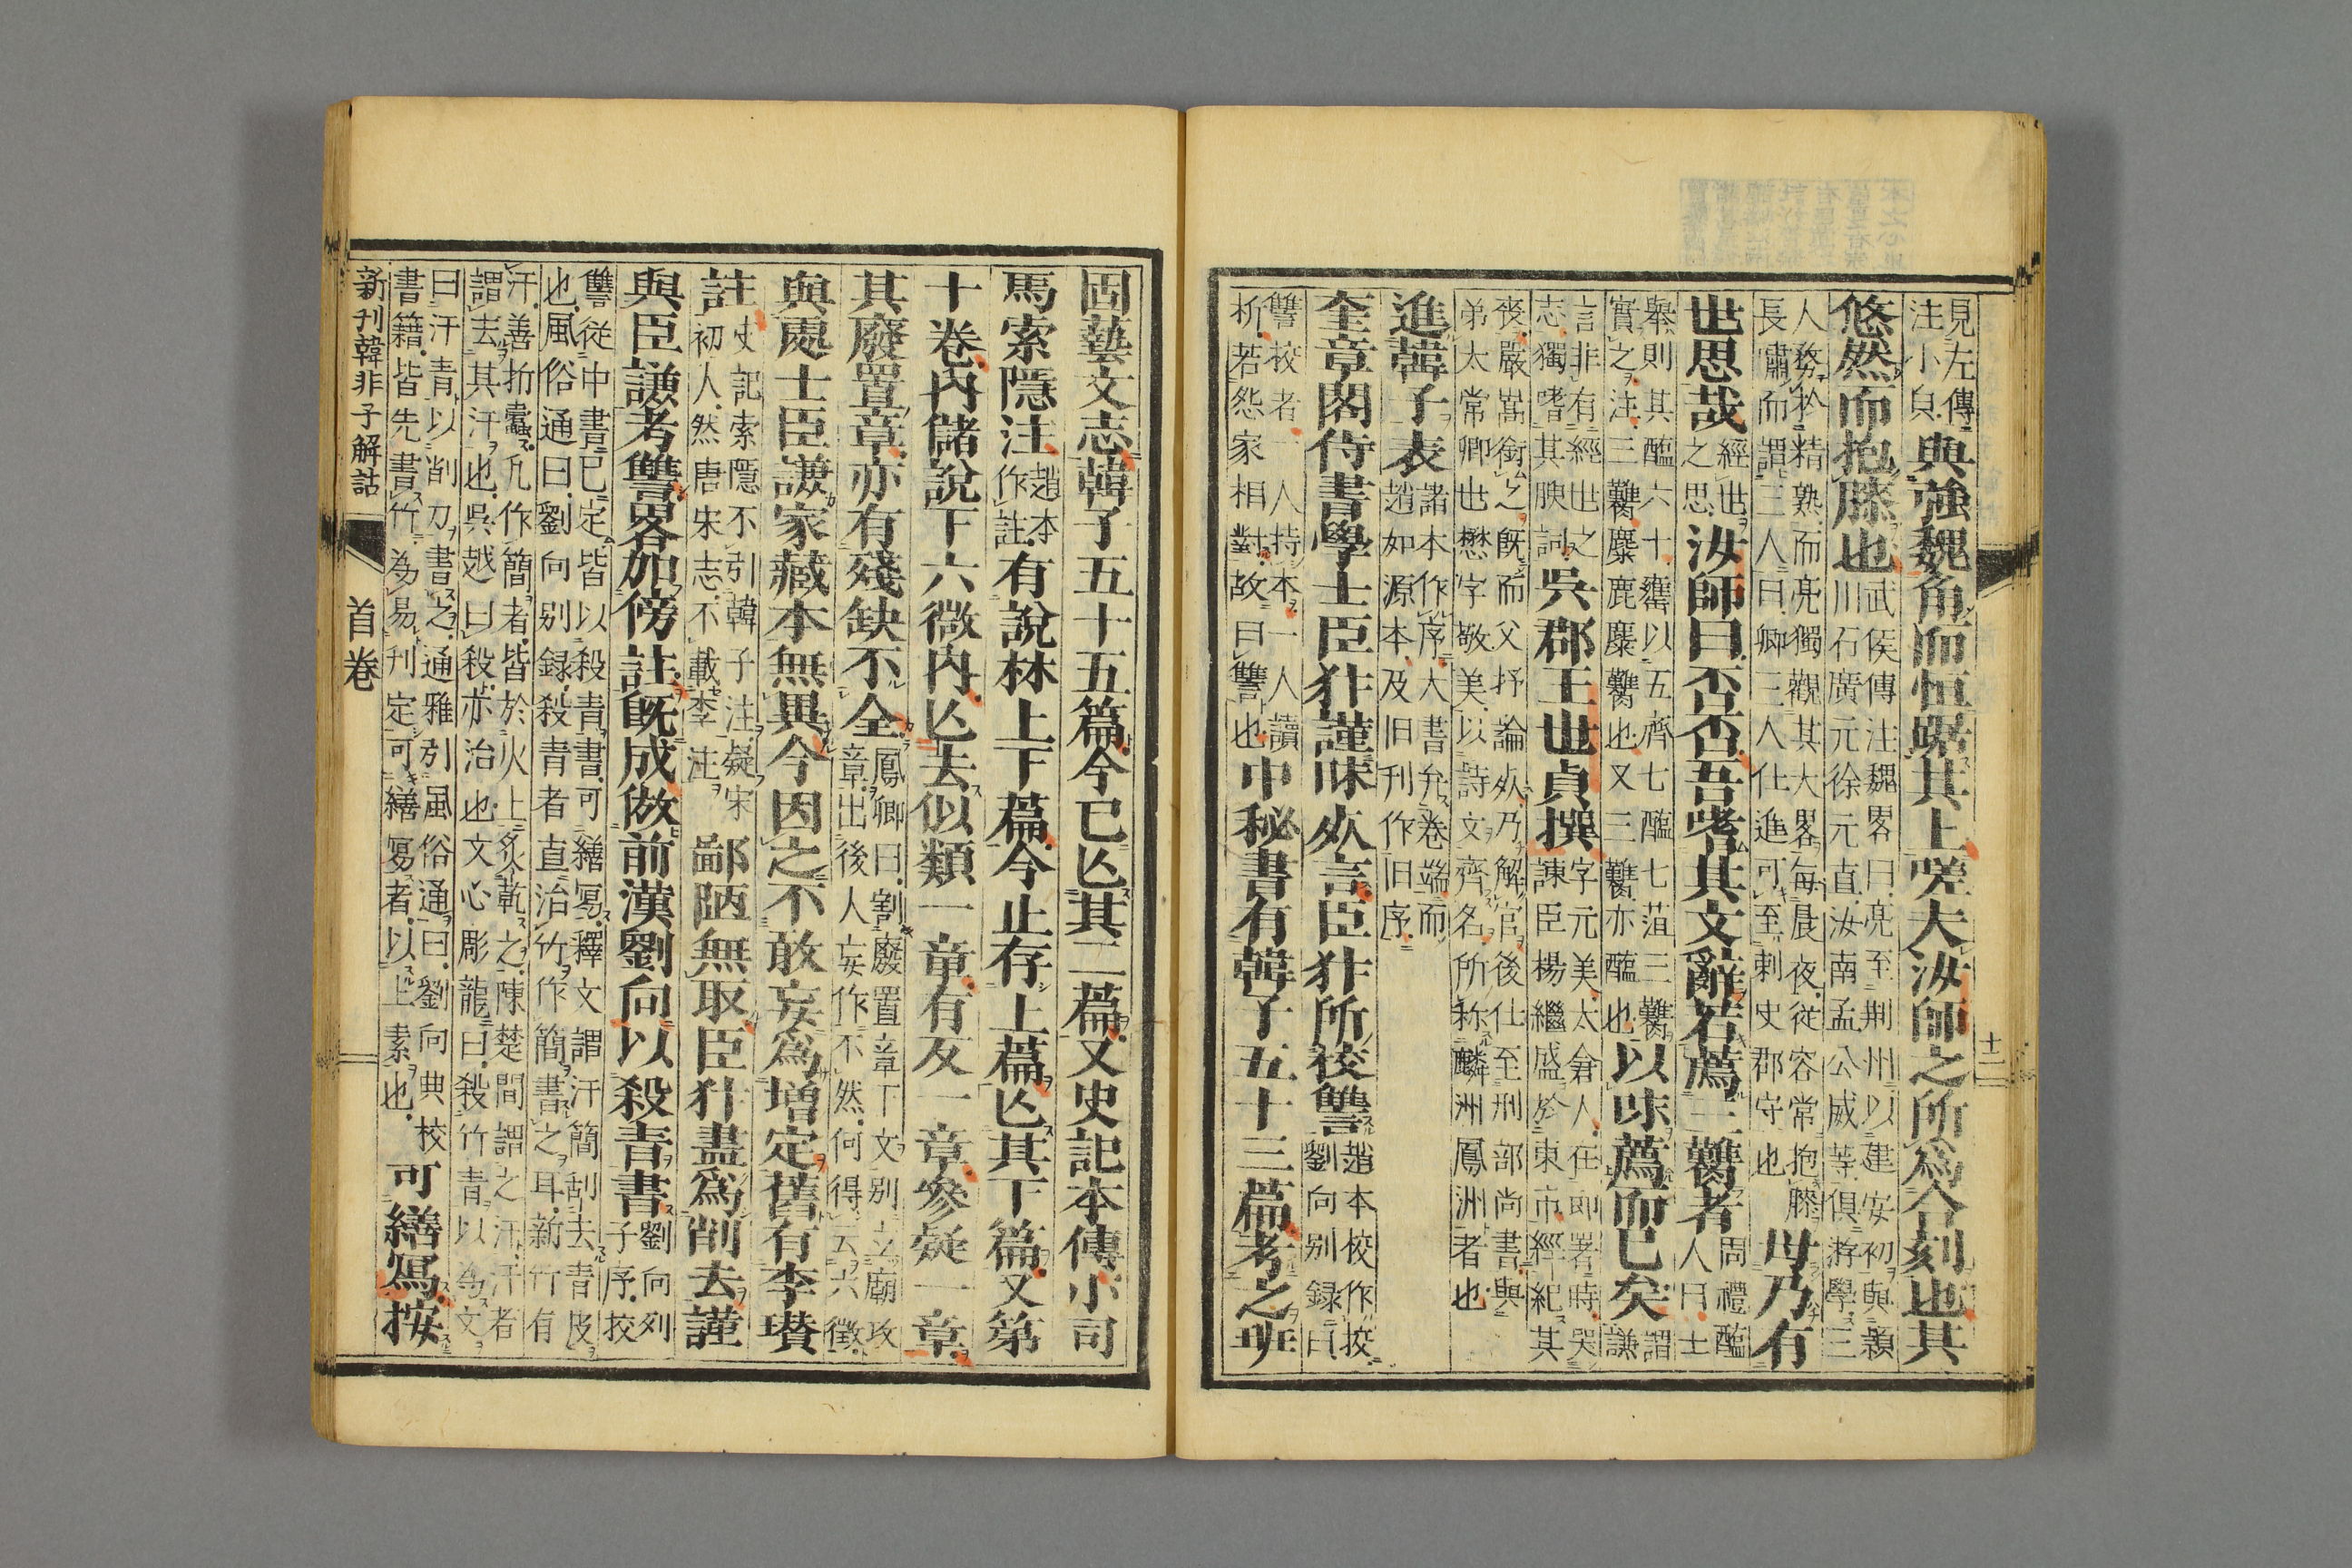 見左傳
注小貞
與強魏角而恒踞其上嗟夫汝師之所為合刻也其
悠然而抱膝也
武侯傳注魏畧曰亮至荆州以建安初與潁
川石廣元徐元直汝南孟公威等俱游學三
人務於精熟而亮獨觀其大畧每晨夜從容常抱膝
長嘯而謂三人曰卿三人仕進可至刺史郡守也
毋乃有
世思哉
經世
之思
汝師曰否否吾嗜其文辭若薦三臡者
周禮醢
人曰士
舉則其醢六十罋以五齊七醢七菹三臡
實之注三臡麋鹿麇臡也又三臡亦醢也
以味薦而已矣
謂
謙
言非有經世之
志獨嗜其腴詞
吳郡王世貞撰
字元美太倉人在郎署時哭
諫臣楊繼盛於東市經紀其
喪嚴嵩銜之既而父抒論死乃解官後仕至刑部尚書與
弟太常卿世懋字敬美以詩文齊名所称麟洲鳳洲者也
進韓子表
諸本作序大書弁卷端而
趙如源本及旧刊作旧序
奎章閣侍書學士臣犿謹昧死言臣犿所校讐
趙本校作挍
劉向别録曰
讐校者一人持本一人讀
析若怨家相對故曰讐也
中秘書有韓子五十三篇考之班
固藝文志韓子五十五篇今已亾其二篇又史記本傳小司
馬索隱注
趙本
作註
有說林上下篇今止存上篇亾其下篇又第
十卷內儲說下六微內亾去似類一章有反一章參疑一章
其廢置章亦有殘缺不全
鳳卿曰割廢置章下文别立廟攻
章出後人妄作不然何得云六徵
與處士臣謙家藏本無異今因之不敢妄為增定舊有李瓚
註
史記索隱不引韓子注疑宋
初人然唐宋志不載李注
鄙陋無取臣犿盡為削去謹
與臣謙考讐畧加傍註既成倣前漢劉向以殺青書
劉向列
子序挍
讐從中書已定皆以殺青書可繕冩釋文謂汗簡刮去青皮
也風俗通曰劉向别録殺青者直治竹作簡書之耳新竹有
汗善折蠹凡作簡者皆於火上炙乾之陳楚間謂之汗汗者
謂去其汗也吳越曰殺亦治也文心彫龍曰殺竹青以為文
曰汗青以削刀書之通雅引風俗通曰劉向典校
書籍皆先書竹為易刊定可繕冩者以上素也
可繕寫按
新刊韓非子解詁
首卷
十二